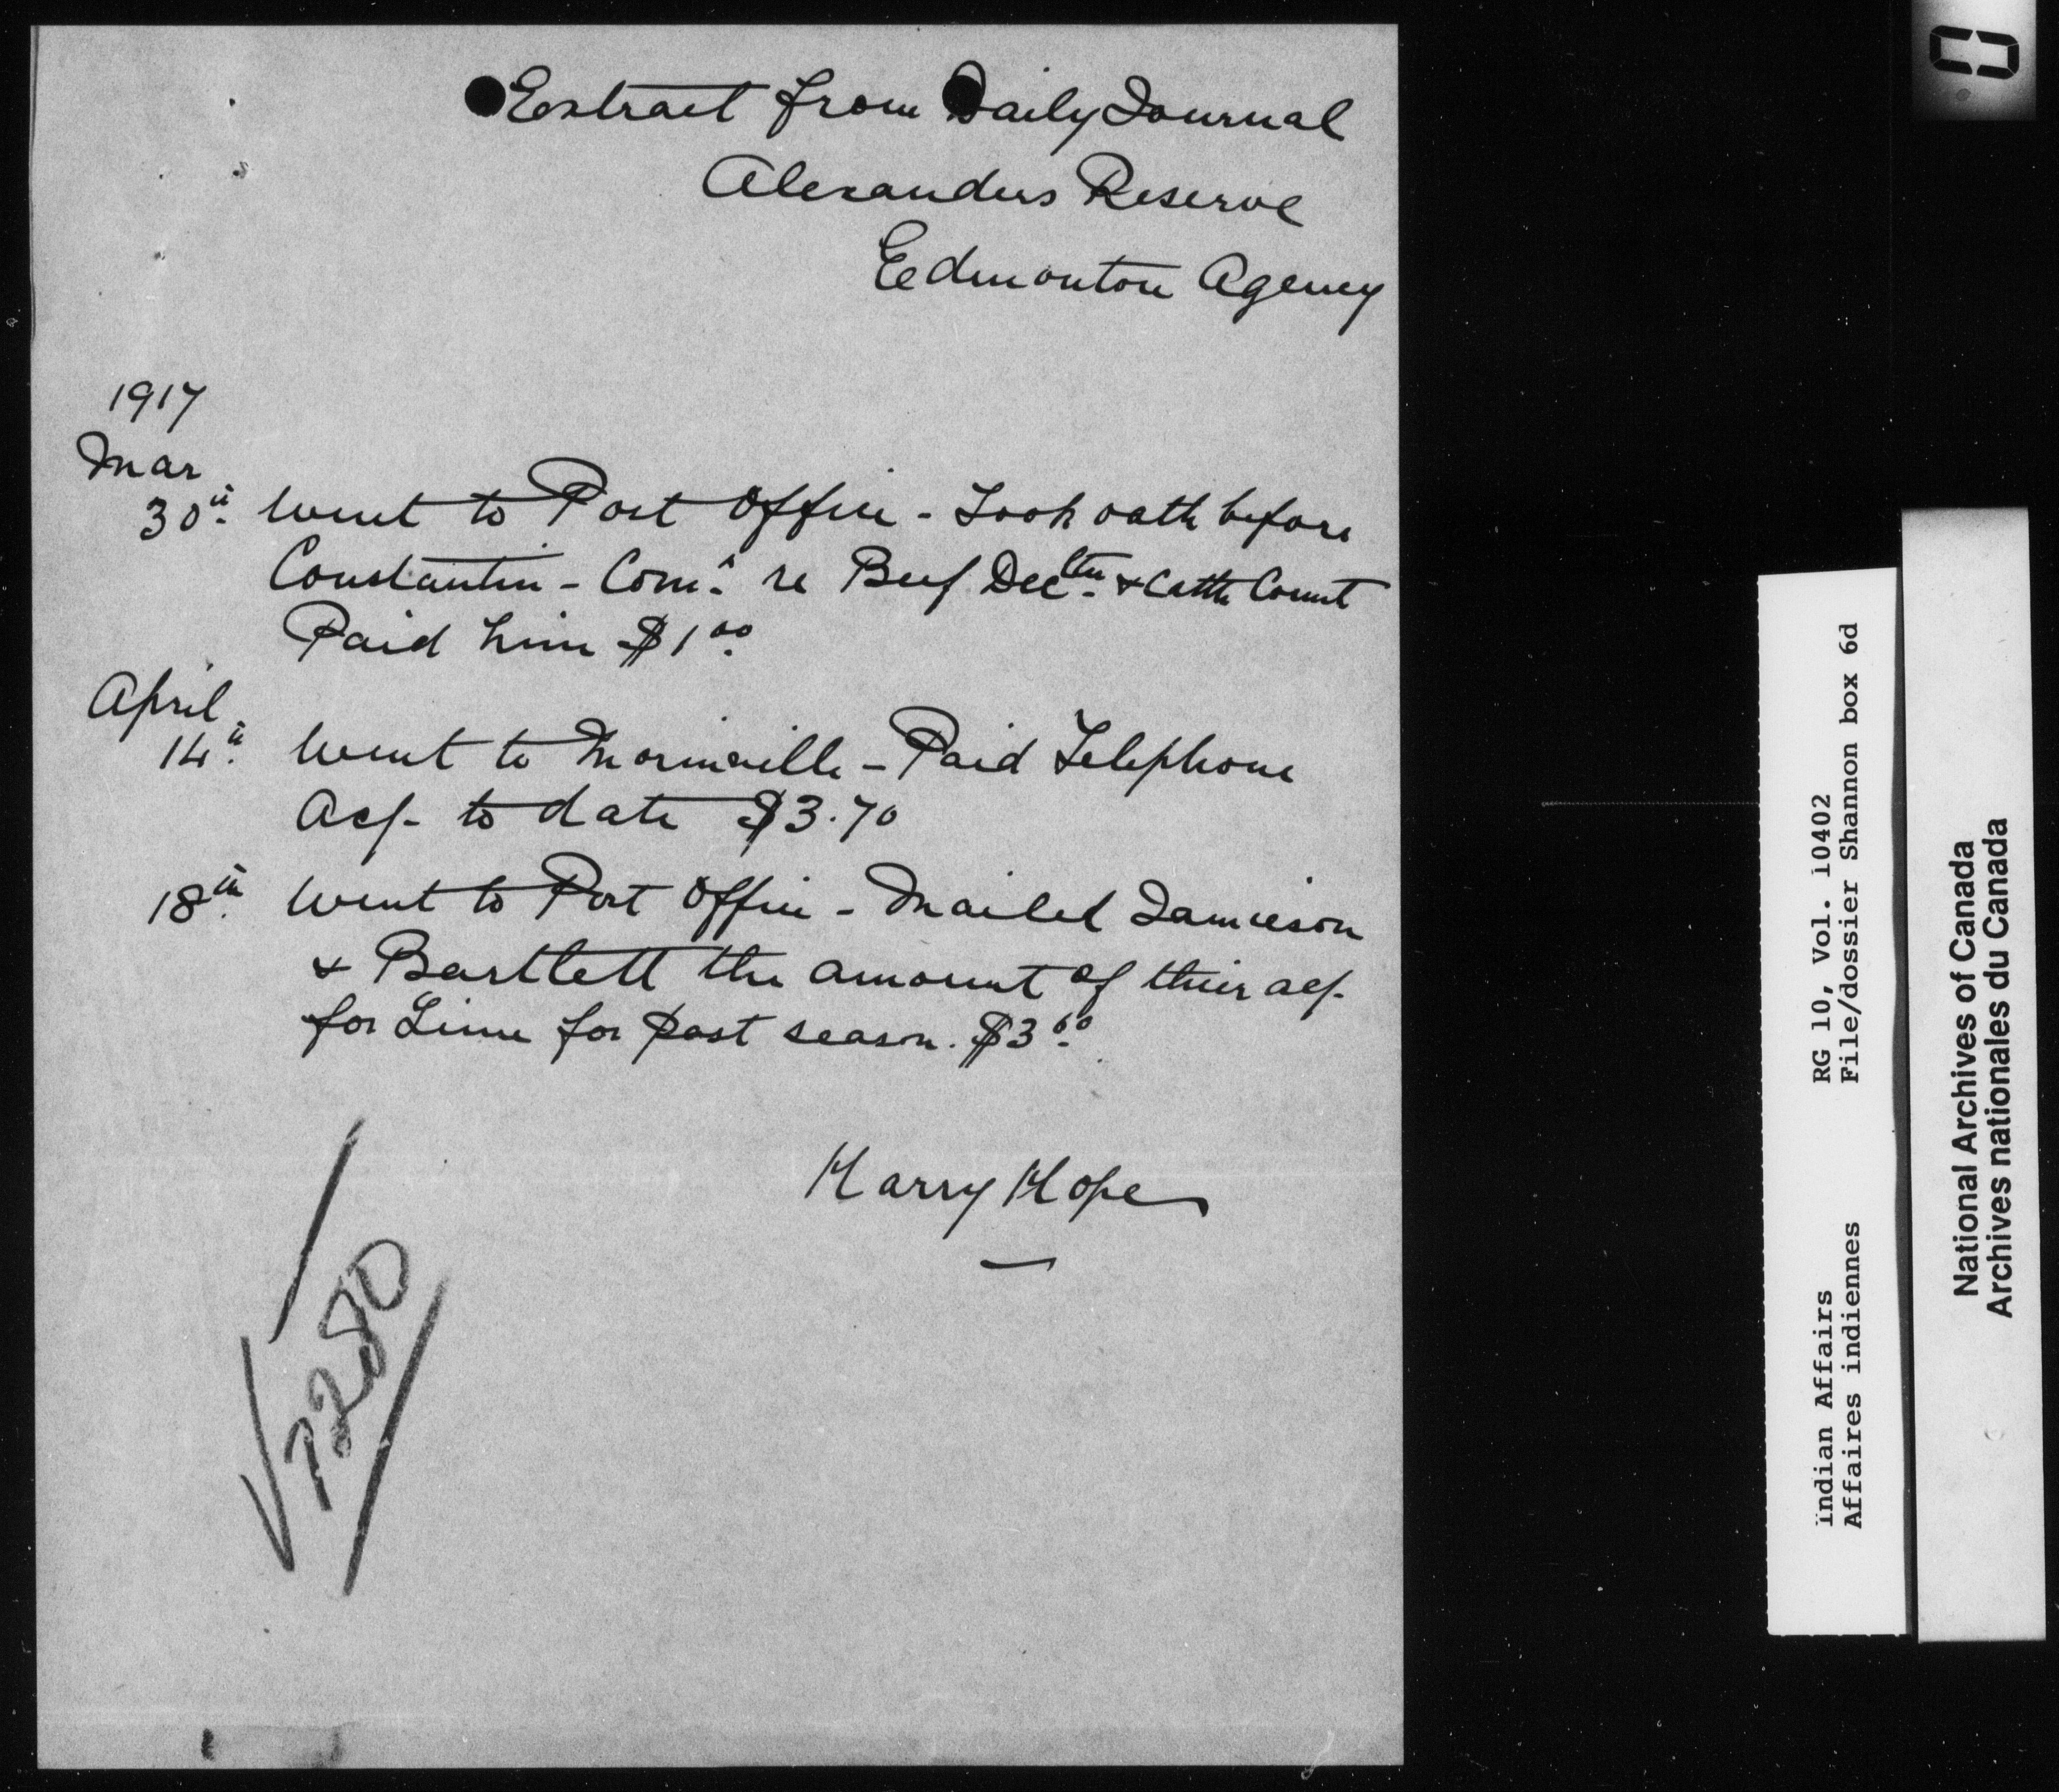 Extract from Daily Journal
Alexanders Reserve
Edmonton Agency
1917
Mar
30th Went to Post Office - Took oath before
Constantin - Comr re Beef Decltn & Cattle Count
Paid him $1.00
April
14th Went to Morinville - Paid Telephone
Acf. to date $3.70
18th Went to Post Office - Mailed Jamieson
& Bartlett the amount of their acf.
for Lime for past season. $3.60
Harry Hope
7280
Indian Affairs RG 10, Vol. 10402
Affaires indiennes File/dossier Shannon box 6d
National Archives of Canada
Archives nationales du Canada